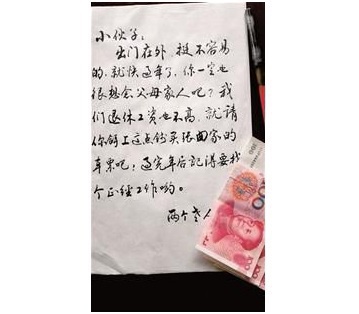 小伙子:
出门在外，挺不容易
的，就快过年了，你一定也
很想念父母家人吧？我
们退休工资也不高，就请
你用上这点钱买张回家的
车票吧！过完年后记得要找
个正经工作哟。
两个老人
100
100